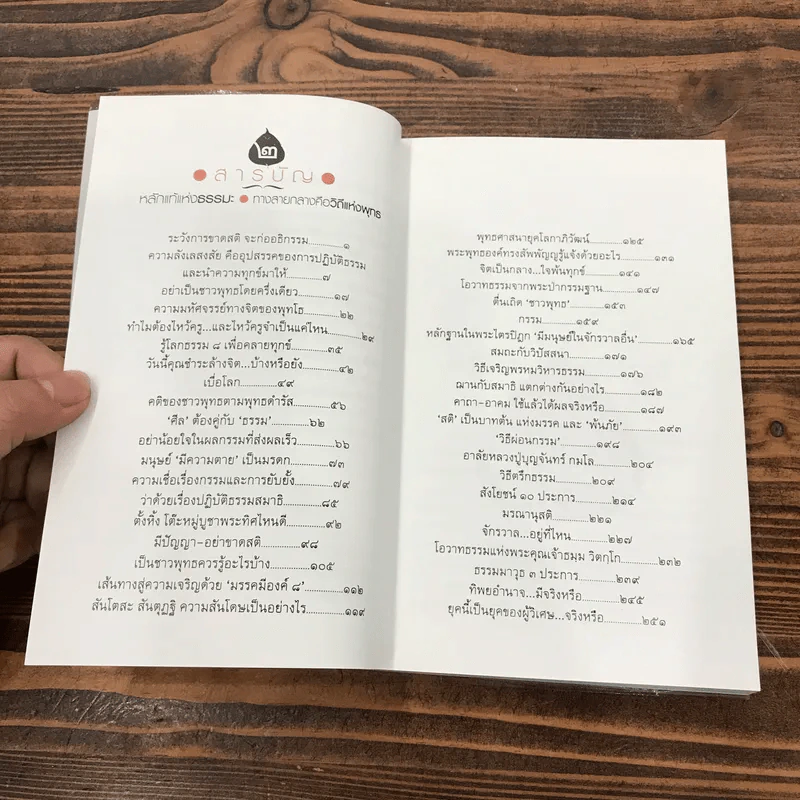 ๒
สารบัญ
หลักแท้แห่งธรรมะ ● ทางสายกลางคือวิถีแห่งพุทธ
ระวังการขาดสติ จะก่ออธิกรรม..........๑
ความลังเลสงสัย คืออุปสรรคของการปฏิบัติธรรม
และนำความทุกข์มาให้..........๗
อย่าเป็นชาวพุทธโดยครึ่งเดียว..........๑๗
ความมหัศจรรย์ทางจิตของพุทโธ..........๒๒
ทำไมต้องไหว้ครู...และไหว้ครูจำเป็นแค่ไหน..........๒๙
รู้โลกธรรม ๘ เพื่อคลายทุกข์..........๓๕
วันนี้คุณชำระล้างจิต...บ้างหรือยัง..........๔๒
เบื่อโลก..........๔๙
คติของชาวพุทธตามพุทธดำรัส..........๕๖
'ศีล' ต้องคู่กับ 'ธรรม'..........๖๒
อย่าน้อยใจในผลกรรมที่ส่งผลเร็ว..........๖๖
มนุษย์ 'มีความตาย' เป็นมรดก..........๗๓
ความเชื่อเรื่องกรรมและการยับยั้ง..........๗๙
ว่าด้วยเรื่องปฏิบัติธรรมสมาธิ..........๘๕
ตั้งหิ้ง โต๊ะหมู่บูชาพระทิศไหนดี..........๙๒
มีปัญญา-อย่าขาดสติ..........๙๘
เป็นชาวพุทธควรรู้อะไรบ้าง..........๑๐๕
เส้นทางสู่ความเจริญด้วย 'มรรคมีองค์ ๘'..........๑๑๒
สันโตสะ สันตุฏฐิ ความสันโดษเป็นอย่างไร..........๑๑๙
พุทธศาสนายุคโลกาภิวัฒน์..........๑๒๕
พระพุทธองค์ทรงสัพพัญญูรู้แจ้งด้วยอะไร..........๑๓๑
จิตเป็นกลาง...ใจพ้นทุกข์..........๑๔๑
โอวาทธรรมจากพระป่ากรรมฐาน..........๑๔๗
ตื่นเถิด 'ชาวพุทธ'..........๑๕๓
กรรม..........๑๕๙
หลักฐานในพระไตรปิฎก 'มีมนุษย์ในจักรวาลอื่น'..........๑๖๕
สมถะกับวิปัสสนา..........๑๗๑
วิธีเจริญพรหมวิหารธรรม..........๑๗๖
ฌานกับสมาธิ แตกต่างกันอย่างไร..........๑๘๒
คาถา-อาคม ใช้แล้วได้ผลจริงหรือ..........๑๘๗
'สติ' เป็นบาทต้น แห่งมรรค และ 'พ้นภัย'..........๑๙๓
'วิธีผ่อนกรรม'..........๑๙๘
อาลัยหลวงปู่บุญจันทร์ กมโล..........๒๐๔
วิธีตรึกธรรม..........๒๐๙
สังโยชน์ ๑๐ ประการ..........๒๑๔
มรณานุสติ..........๒๒๑
จักรวาล...อยู่ที่ไหน..........๒๒๗
โอวาทธรรมแห่งพระคุณเจ้าธมฺม วิตกฺโก..........๒๓๒
ธรรมมาวุธ ๓ ประการ..........๒๓๙
ทิพยอำนาจ...มีจริงหรือ..........๒๔๕
ยุคนี้เป็นยุคของผู้วิเศษ...จริงหรือ..........๒๕๑